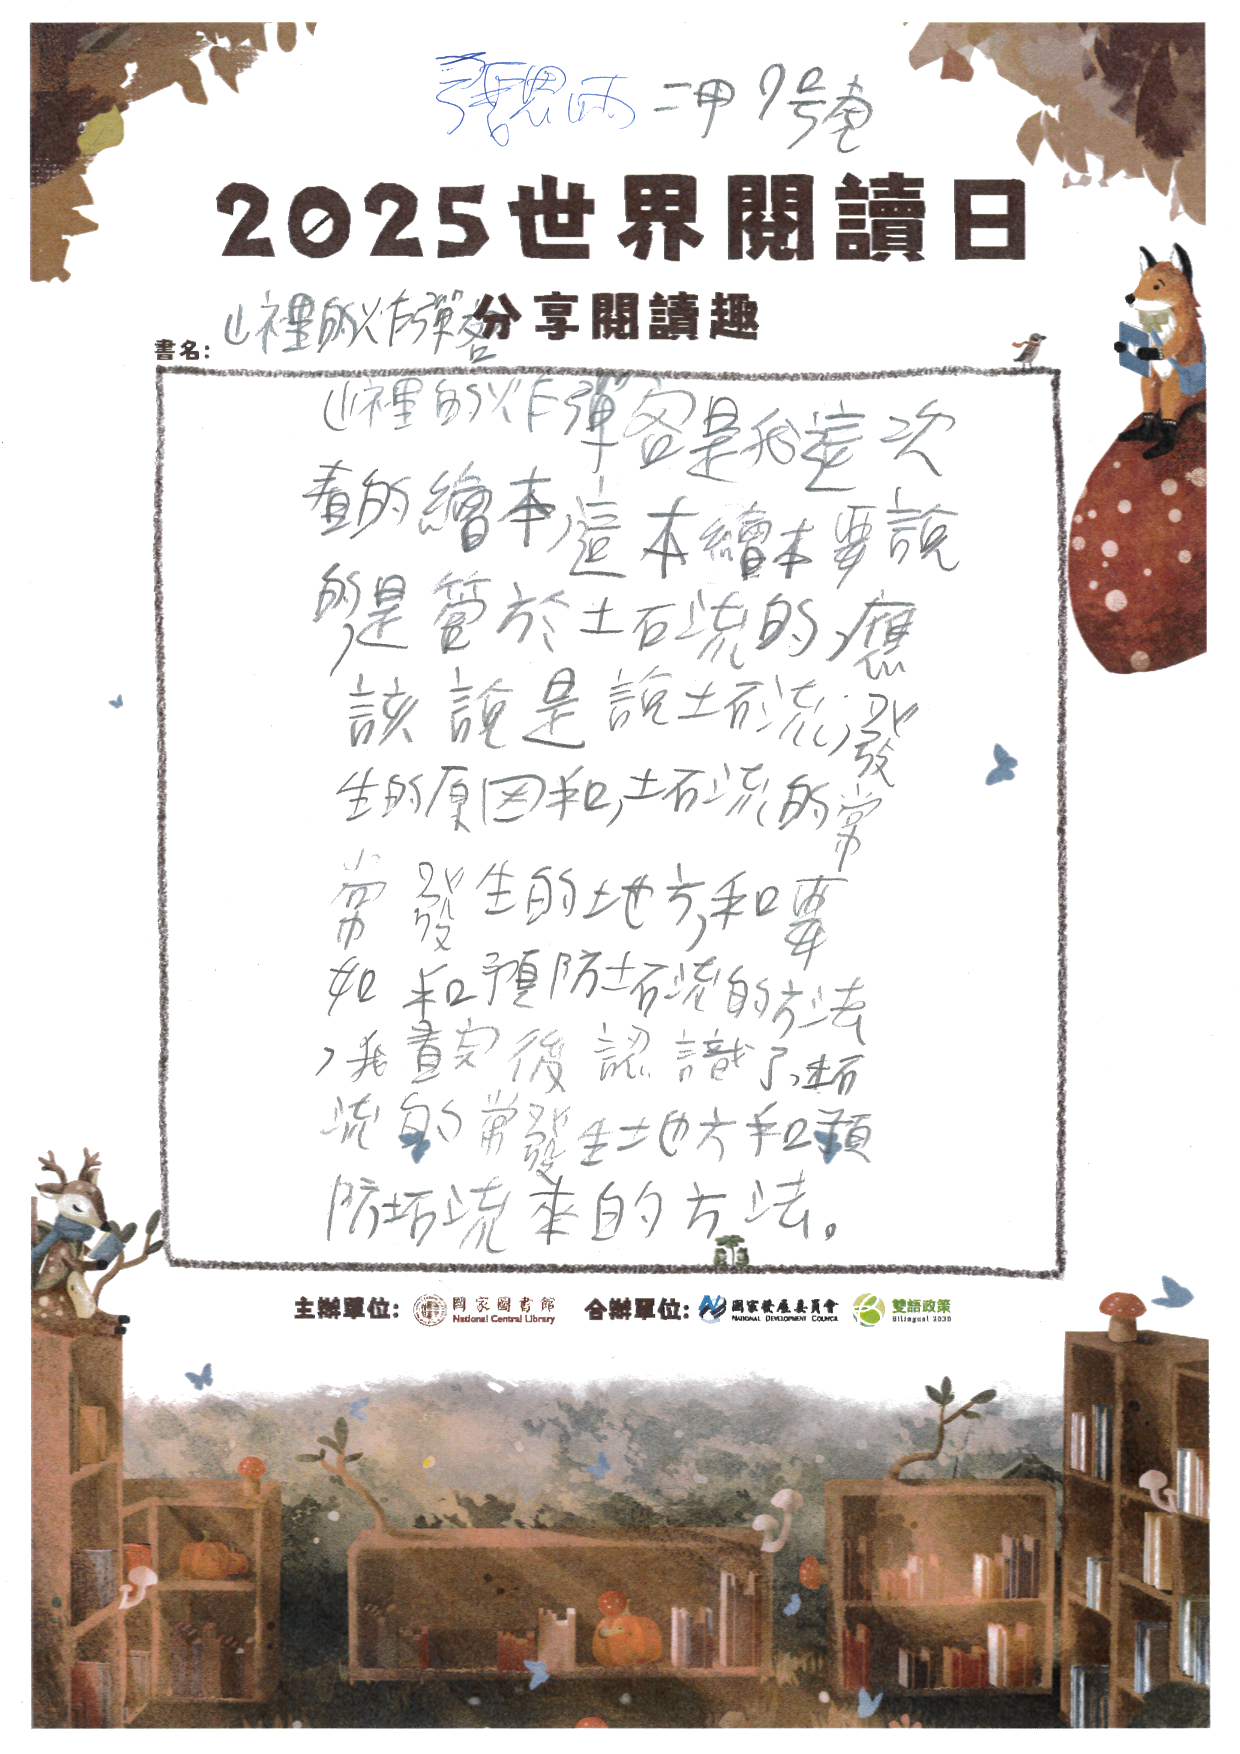 二甲 9号
2025世界閱讀日
分享閱讀趣
書名: 山裡的炸彈客
山裡的炸彈客是我這次
看的繪本,這本繪本要說
的,是管於土石流的,應
該說是說土石流,發
生的原因和,土石流的常
常發生的地方,和要
如和預防土石流的方法
,我看完後認識了,土石
流的常發生土地方和預
防土石流來的方法。
主辦單位: 國家圖書館 National Central Library 合辦單位: 國家發展委員會 National Development Council 雙語政策 Bilingual 2030